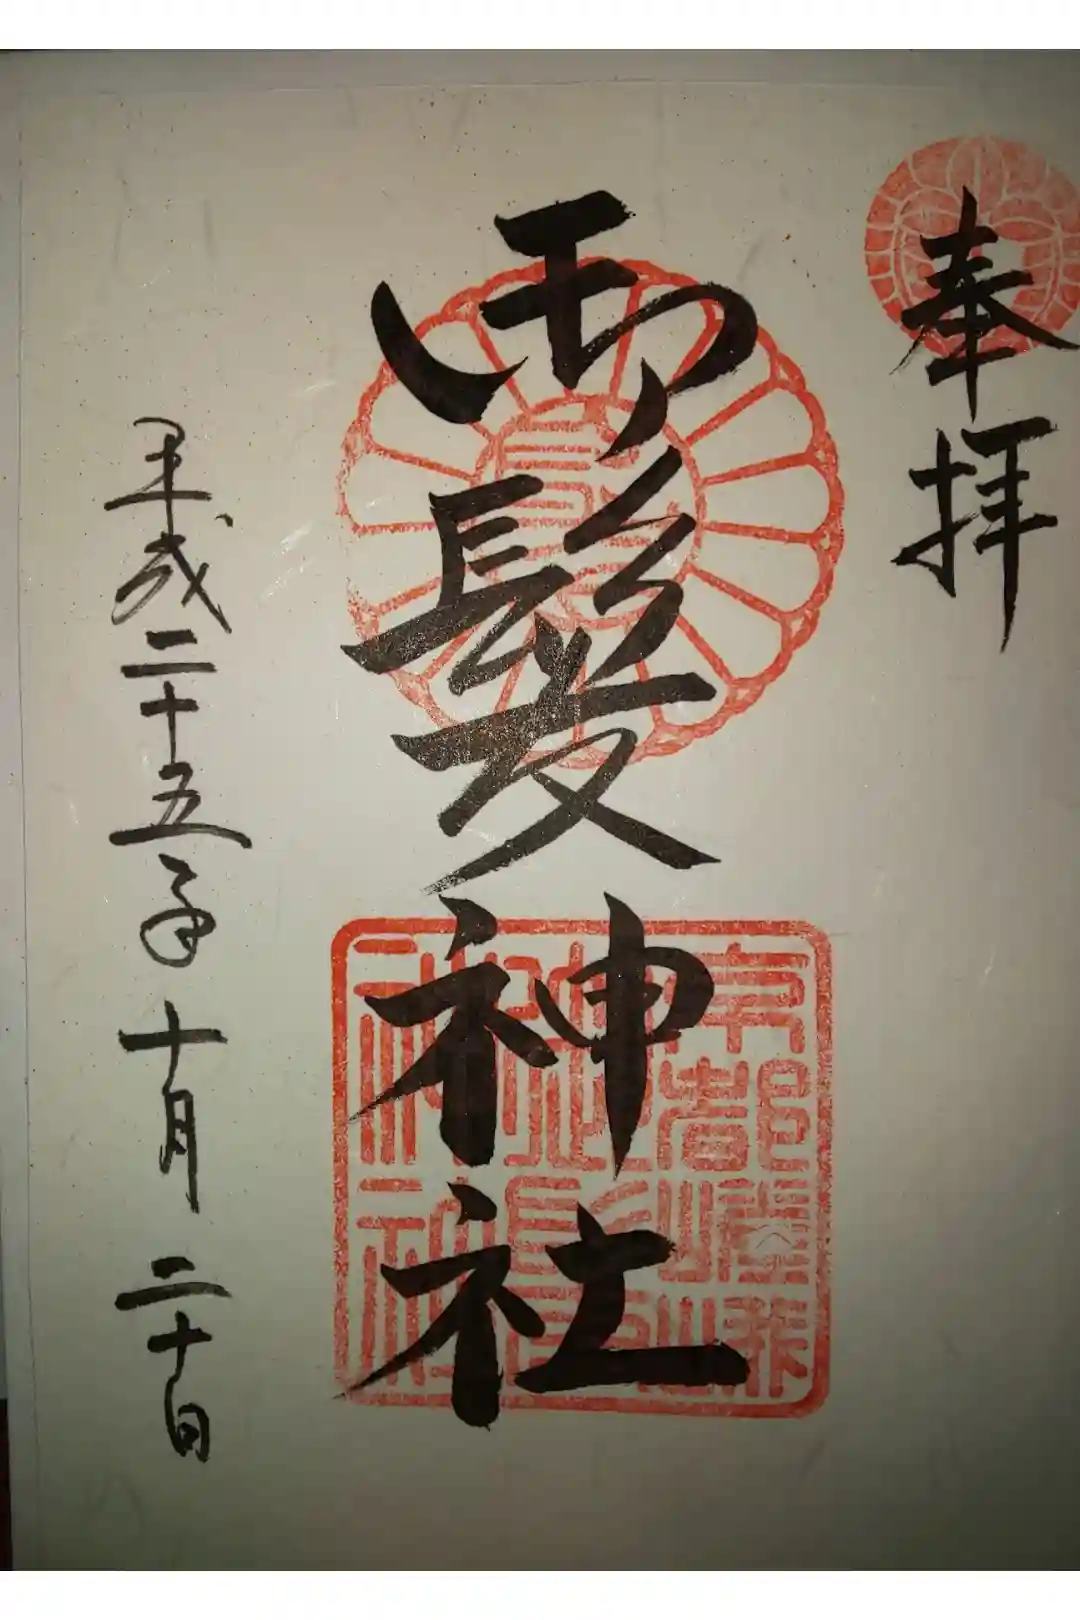 奉拝
御髪神社
平成二十五年十月二十日
京都嵯峨
池畔
御髪
神社